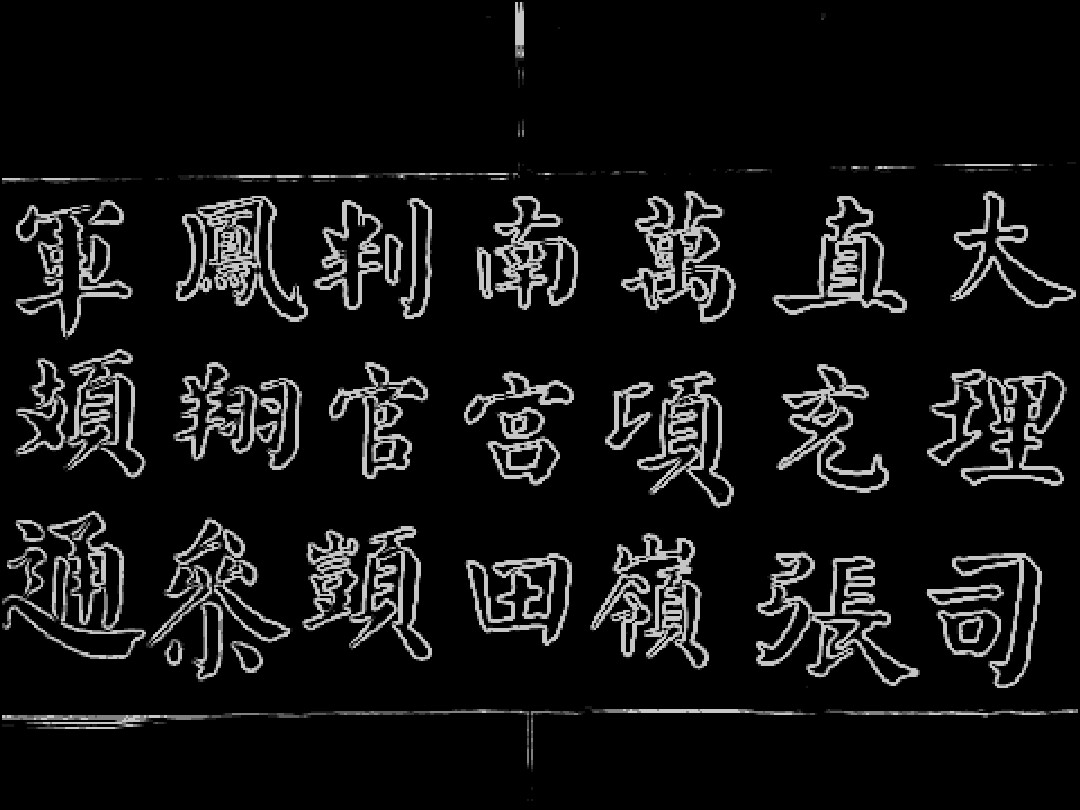 大理司
直充張
萬頃嶺
南宮田
判官顗
鳳翔參
軍頍通